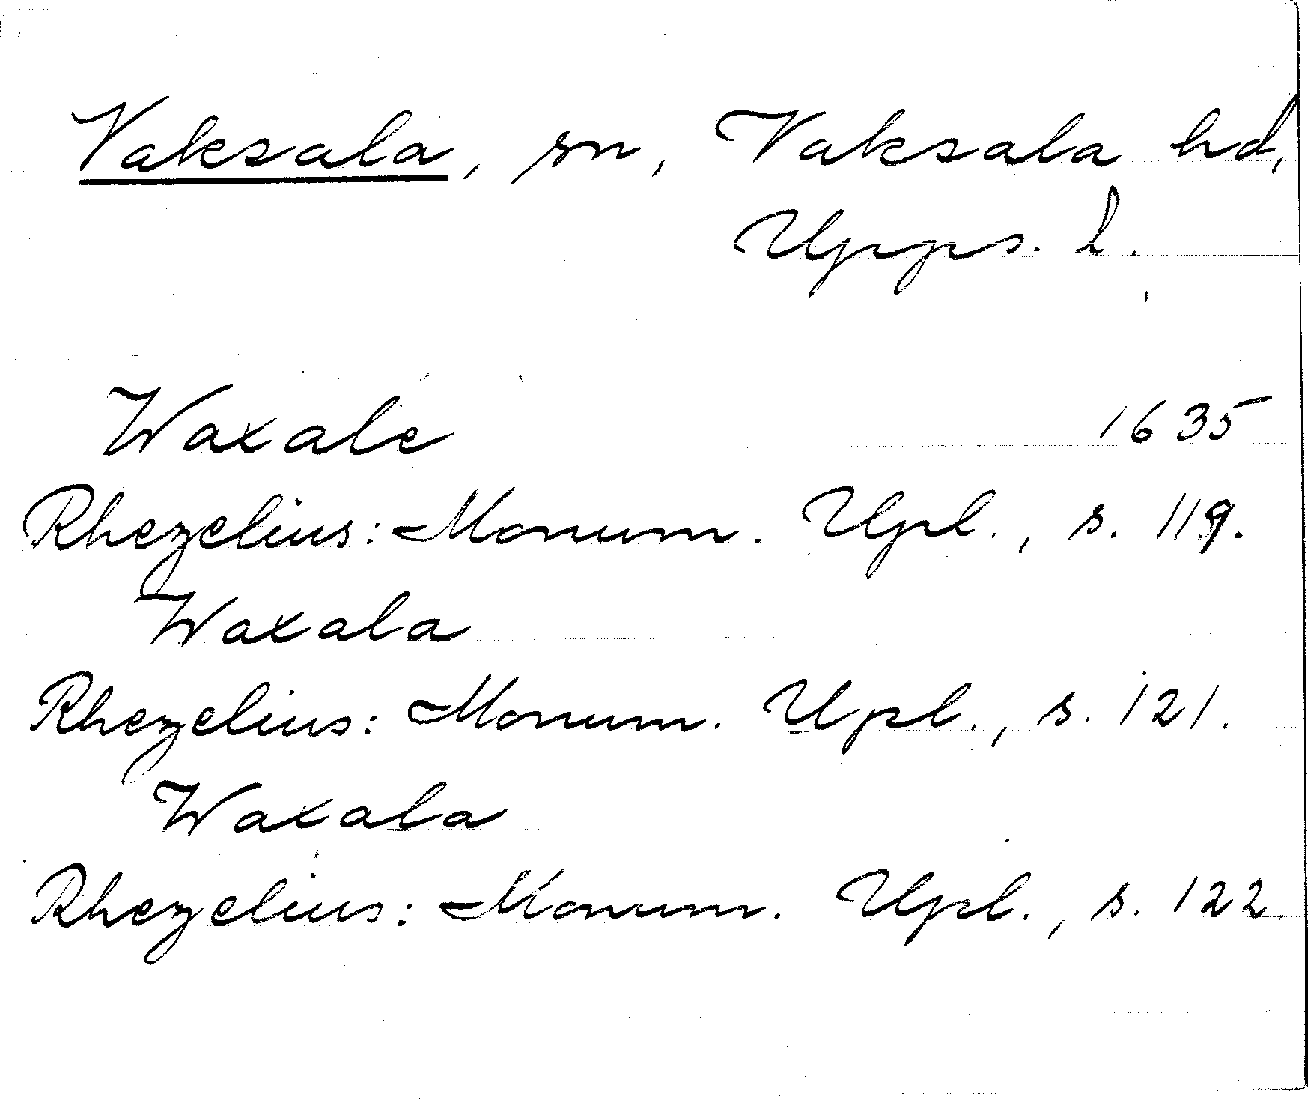 Vaksala, sn, Vaksala hd,
Upps. l.
Waxale 1635
Rhezelius: Monum. Upl., s. 119.
Waxala
Rhezelius: Monum. Upl., s. 121.
Waxala
Rhezelius: Monum. Upl., s. 122